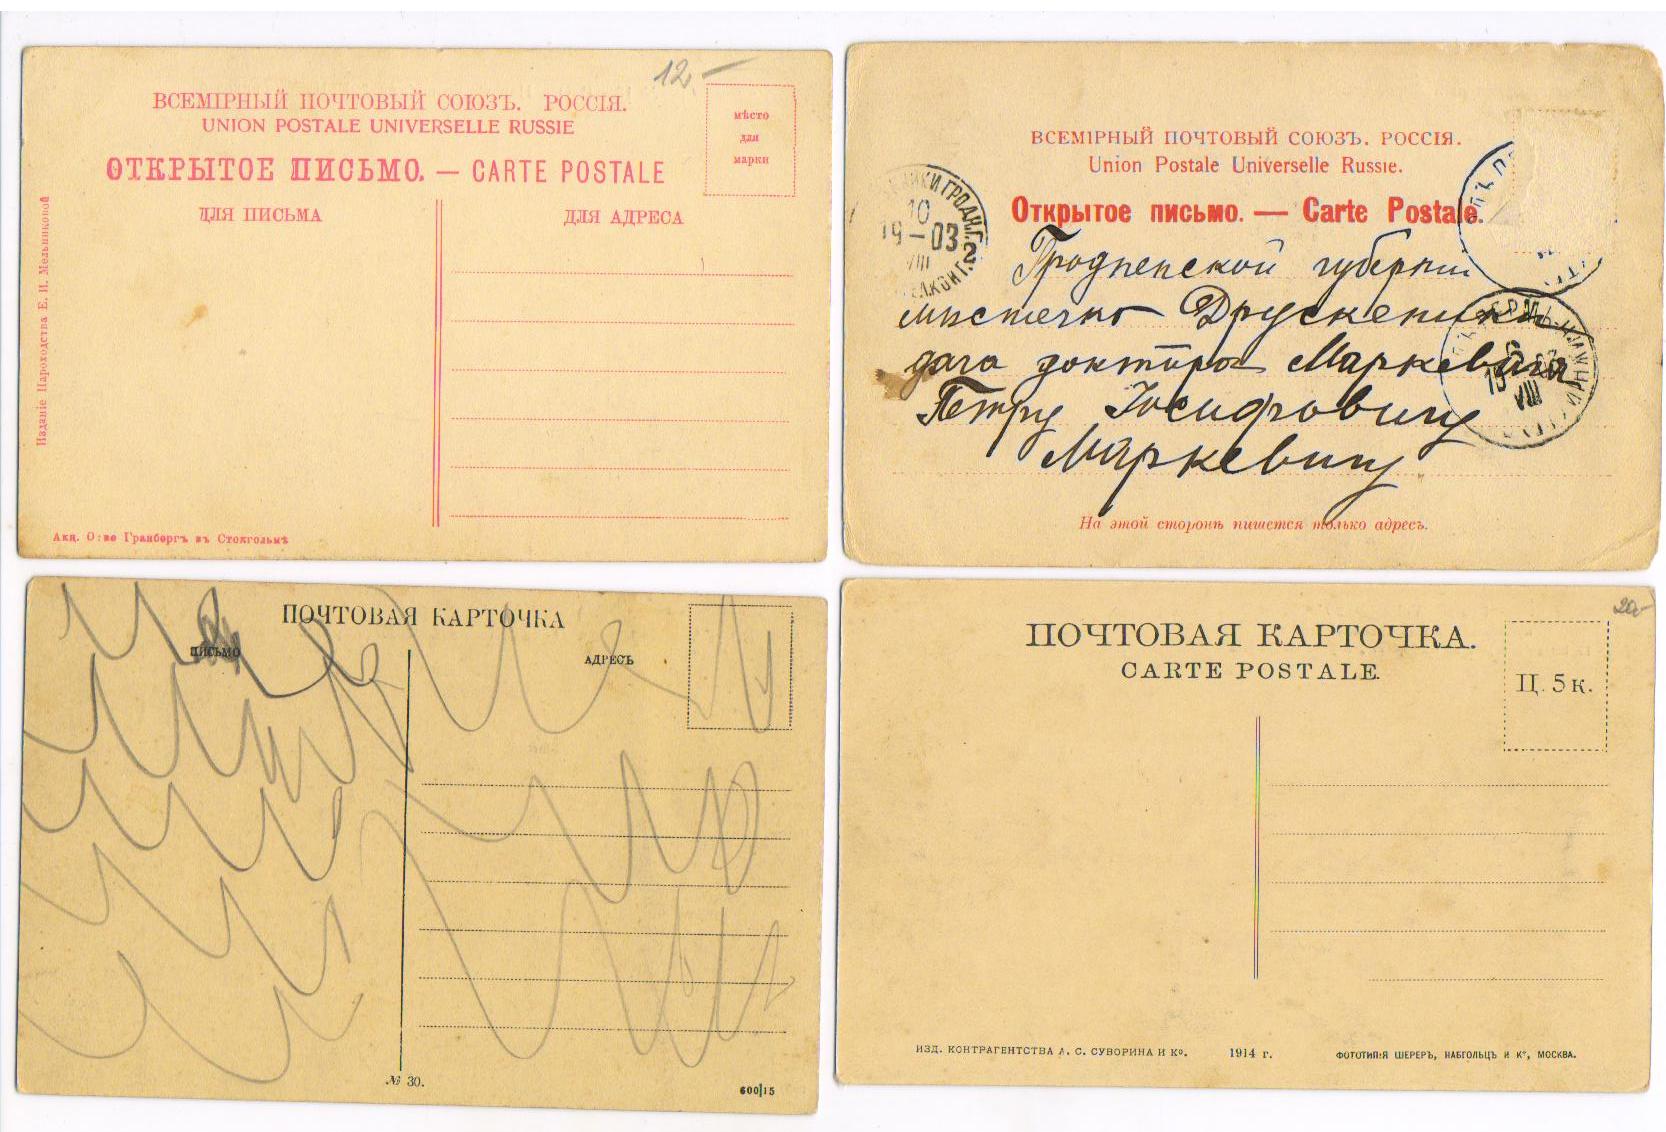 12.—
ВСЕМІРНЫЙ ПОЧТОВЫЙ СОЮЗЪ. РОССІЯ.
UNION POSTALE UNIVERSELLE RUSSIE
ОТКРЫТОЕ ПИСЬМО. — CARTE POSTALE
мѣсто
для
марки
ДЛЯ ПИСЬМА
ДЛЯ АДРЕСА
Изданіе Пароходства Е. И. Мельниковой
Акц. О:во Гранбергъ въ Стокгольмѣ
ВСЕМІРНЫЙ ПОЧТОВЫЙ СОЮЗЪ. РОССІЯ.
Union Postale Universelle Russie.
Открытое письмо. — Carte Postale.
10
19-03
VIII
Гродненской губерніи
мѣстечко Друскеники
дача доктора Маркевича
Петру Іосифовичу
Маркевичу
На этой сторонѣ пишется только адресъ.
ПОЧТОВАЯ КАРТОЧКА
ПИСЬМО
АДРЕСЪ
№ 30.
600|15
20.-
ПОЧТОВАЯ КАРТОЧКА.
CARTE POSTALE.
Ц. 5 к.
ИЗД. КОНТРАГЕНТСТВА А. С. СУВОРИНА И Ко. 1914 г. ФОТОТИПІЯ ШЕРЕРЪ, НАБГОЛЬЦЪ И Ко, МОСКВА.